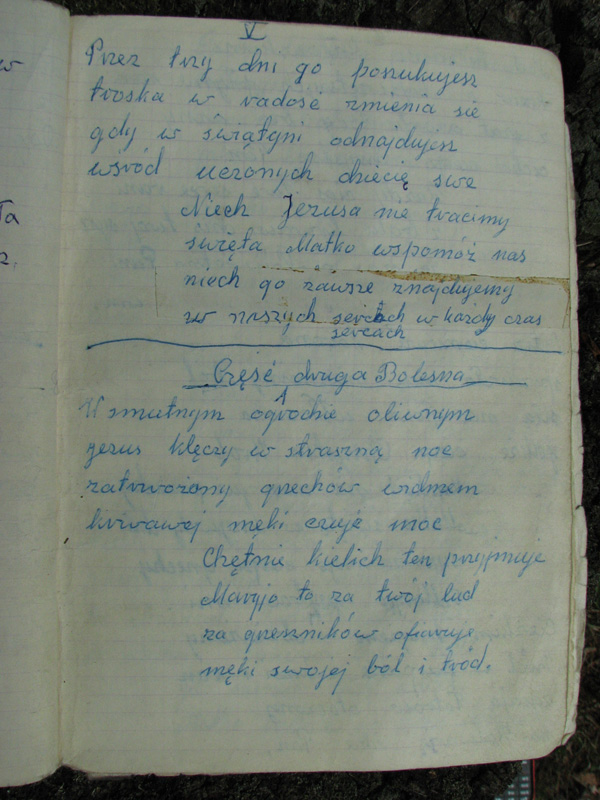 V
Przez trzy dni go poszukujesz
troska w radosc zmienia się
gdy w świątyni odnajdujesz
wśród uczonych dziecię swe
Niech Jezusa nie tracimy
swięta Matko wspomóż nas
niech go zawsze znajdujemy
w naszych sercach w każdy czas
sercach
Część druga Bolesna
I
W smutnym ogrodzie oliwnym
jezus klęczy w straszną noc
zatrwożony grzechów widmem
krwawej męki czuje moc
Chętnie kielich ten przyjmuje
Maryjo to za twój lud
za grzeszników ofiaruje
męki swojej ból i tród.
w
ła
z.